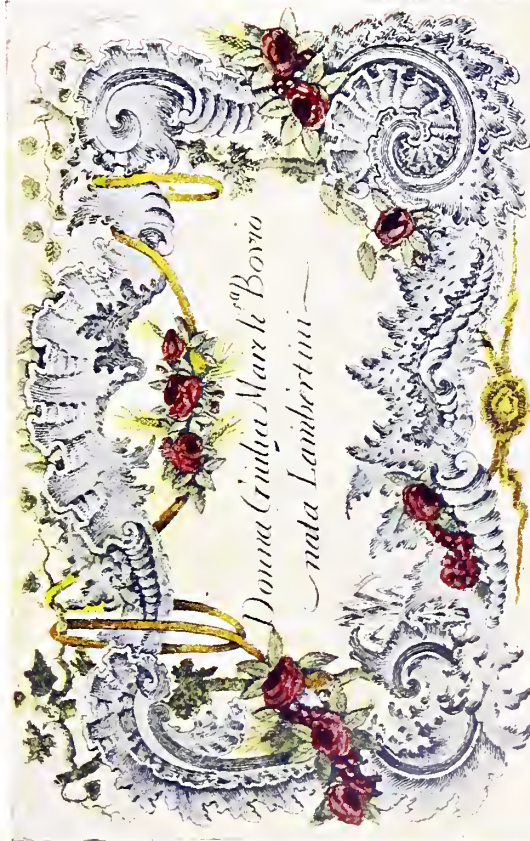 Donna Giulia March.ᵃ Bovio
nata Lambertini